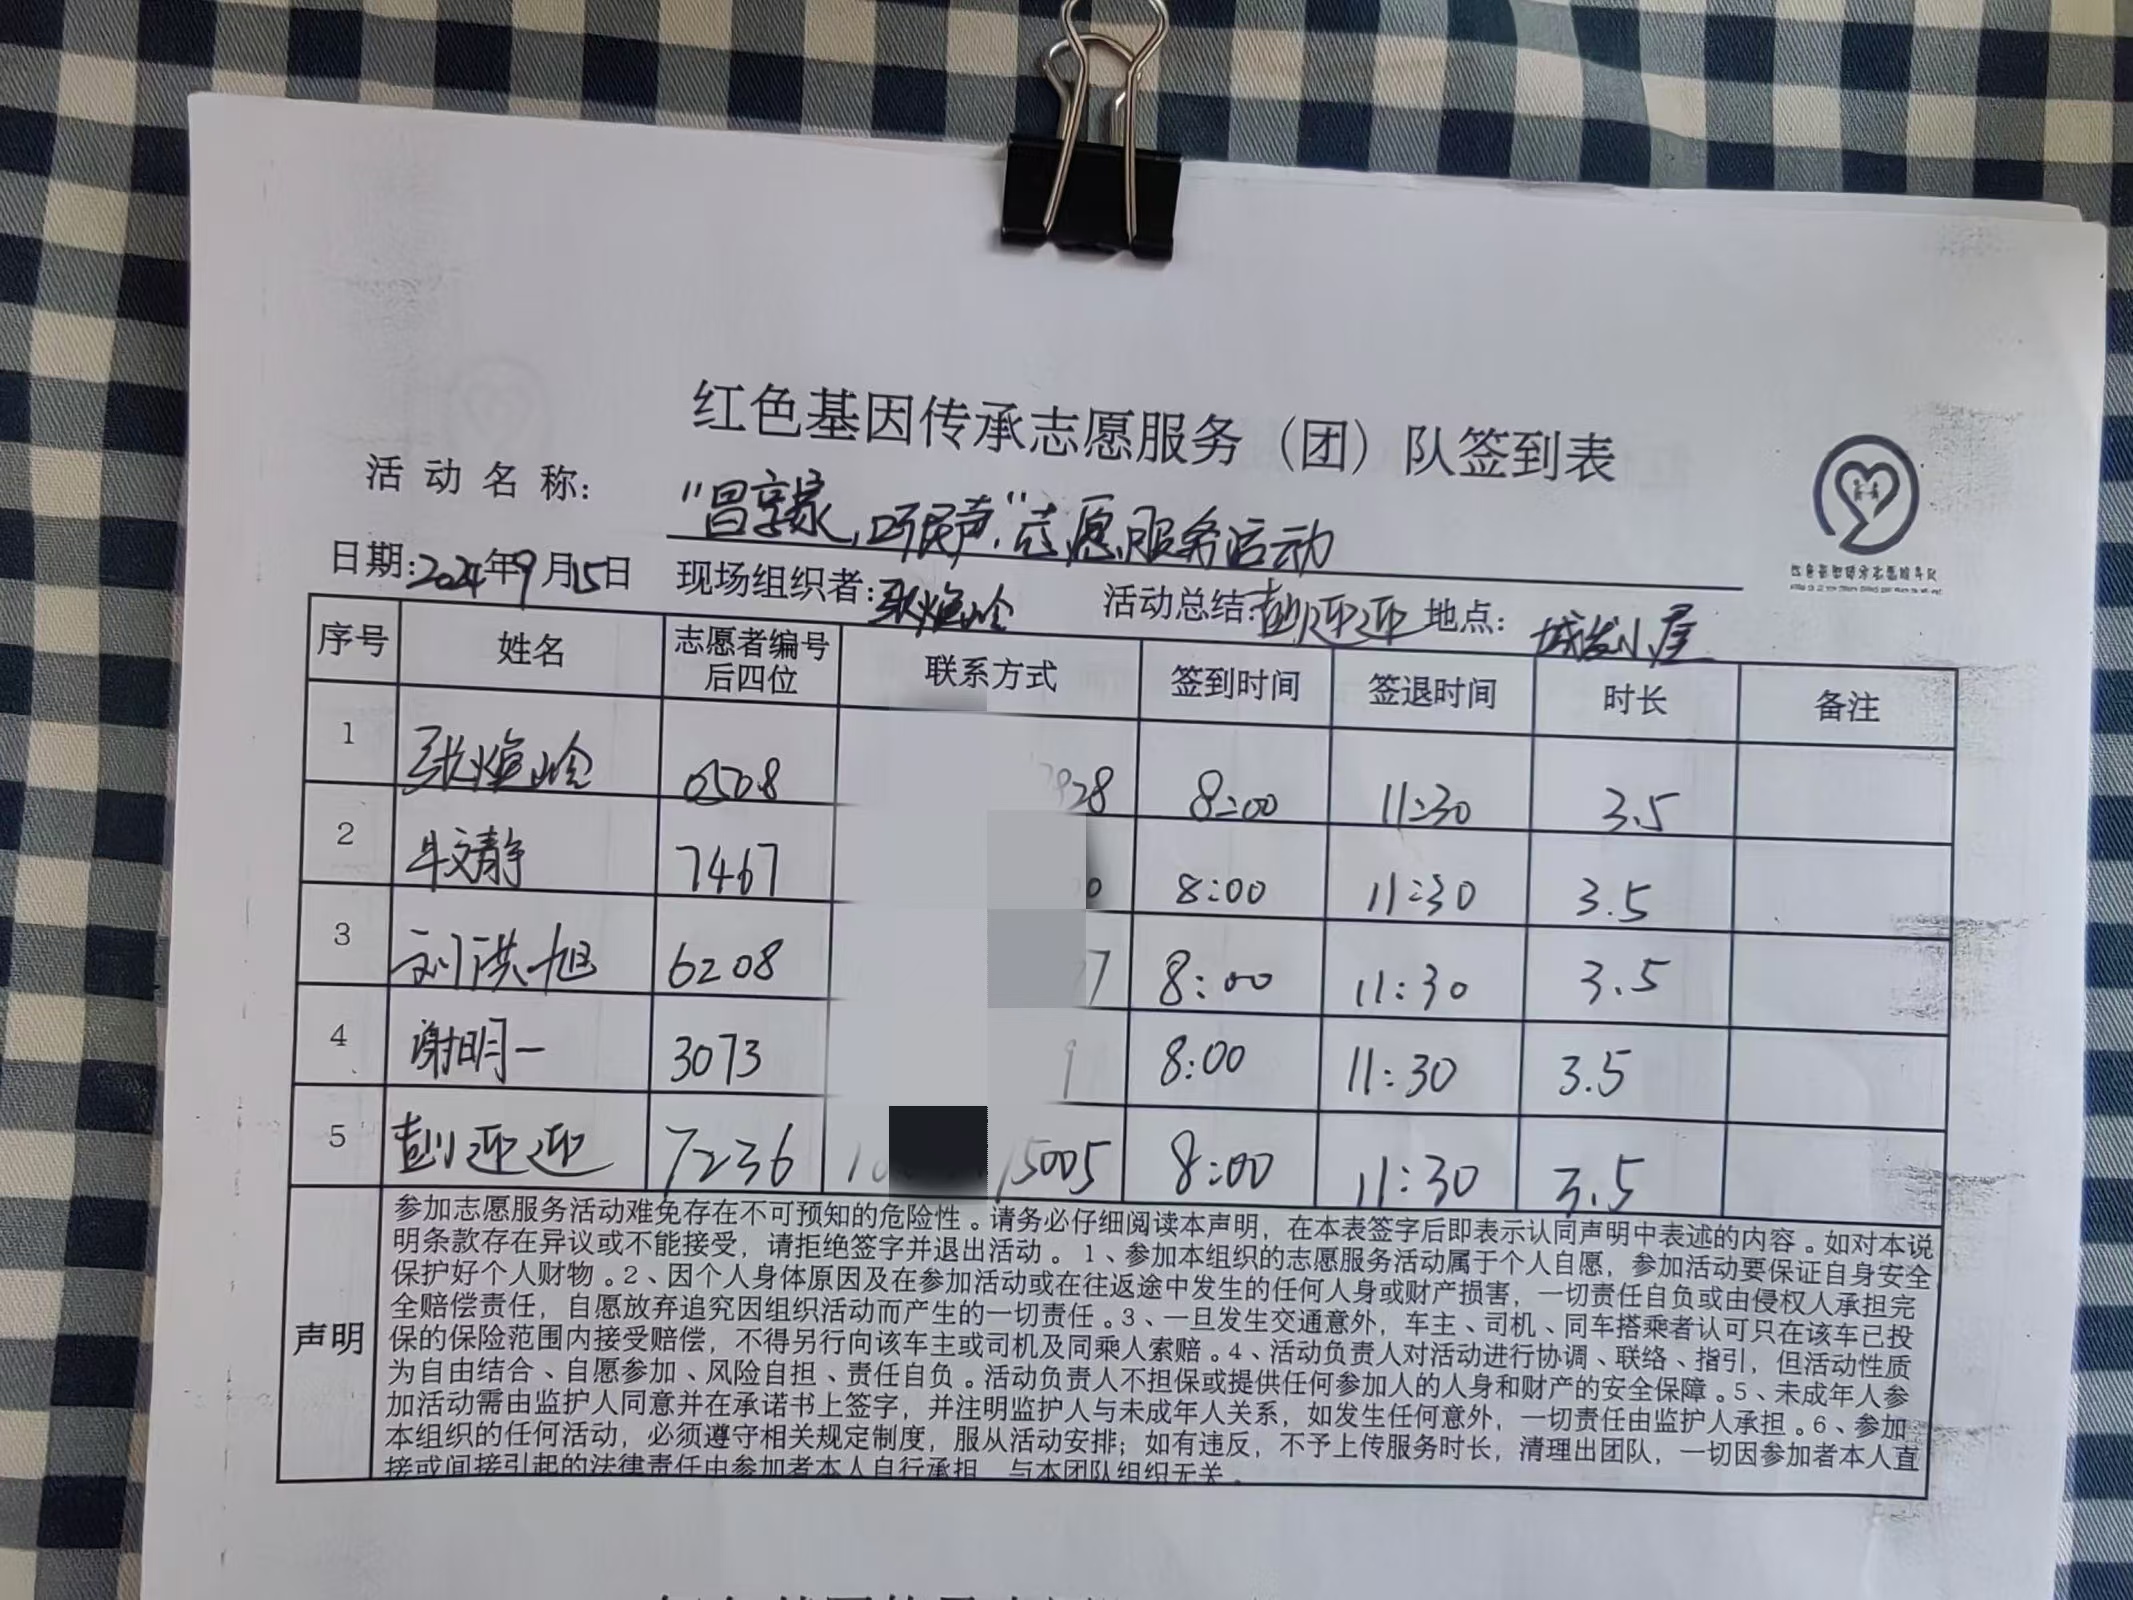 红色基因传承志愿服务（团）队签到表
活动名称： “昌享家，听民声”志愿服务活动
日期：2024年9月15日 现场组织者：张焕岭 活动总结：彭迎迎 地点：城发小屋
序号 姓名 志愿者编号后四位 联系方式 签到时间 签退时间 时长 备注
1 张焕岭 0508 28 8:00 11:30 3.5
2 牛文静 7467 0 8:00 11:30 3.5
3 刘洪旭 6208 7 8:00 11:30 3.5
4 谢明一 3073 9 8:00 11:30 3.5
5 彭迎迎 7236 5005 8:00 11:30 3.5
声明
参加志愿服务活动难免存在不可预知的危险性。请务必仔细阅读本声明，在本表签字后即表示认同声明中表述的内容。如对本说
明条款存在异议或不能接受，请拒绝签字并退出活动。1、参加本组织的志愿服务活动属于个人自愿，参加活动要保证自身安全
保护好个人财物。2、因个人身体原因及在参加活动或在往返途中发生的任何人身或财产损害，一切责任自负或由侵权人承担完
全赔偿责任，自愿放弃追究因组织活动而产生的一切责任。3、一旦发生交通意外，车主、司机、同车搭乘者认可只在该车已投
保的保险范围内接受赔偿，不得另行向该车主或司机及同乘人索赔。4、活动负责人对活动进行协调、联络、指引，但活动性质
为自由结合、自愿参加、风险自担、责任自负。活动负责人不担保或提供任何参加人的人身和财产的安全保障。5、未成年人参
加活动需由监护人同意并在承诺书上签字，并注明监护人与未成年人关系，如发生任何意外，一切责任由监护人承担。6、参加
本组织的任何活动，必须遵守相关规定制度，服从活动安排；如有违反，不予上传服务时长，清理出团队，一切因参加者本人直
接或间接引起的法律责任由参加者本人自行承担，与本团队组织无关。